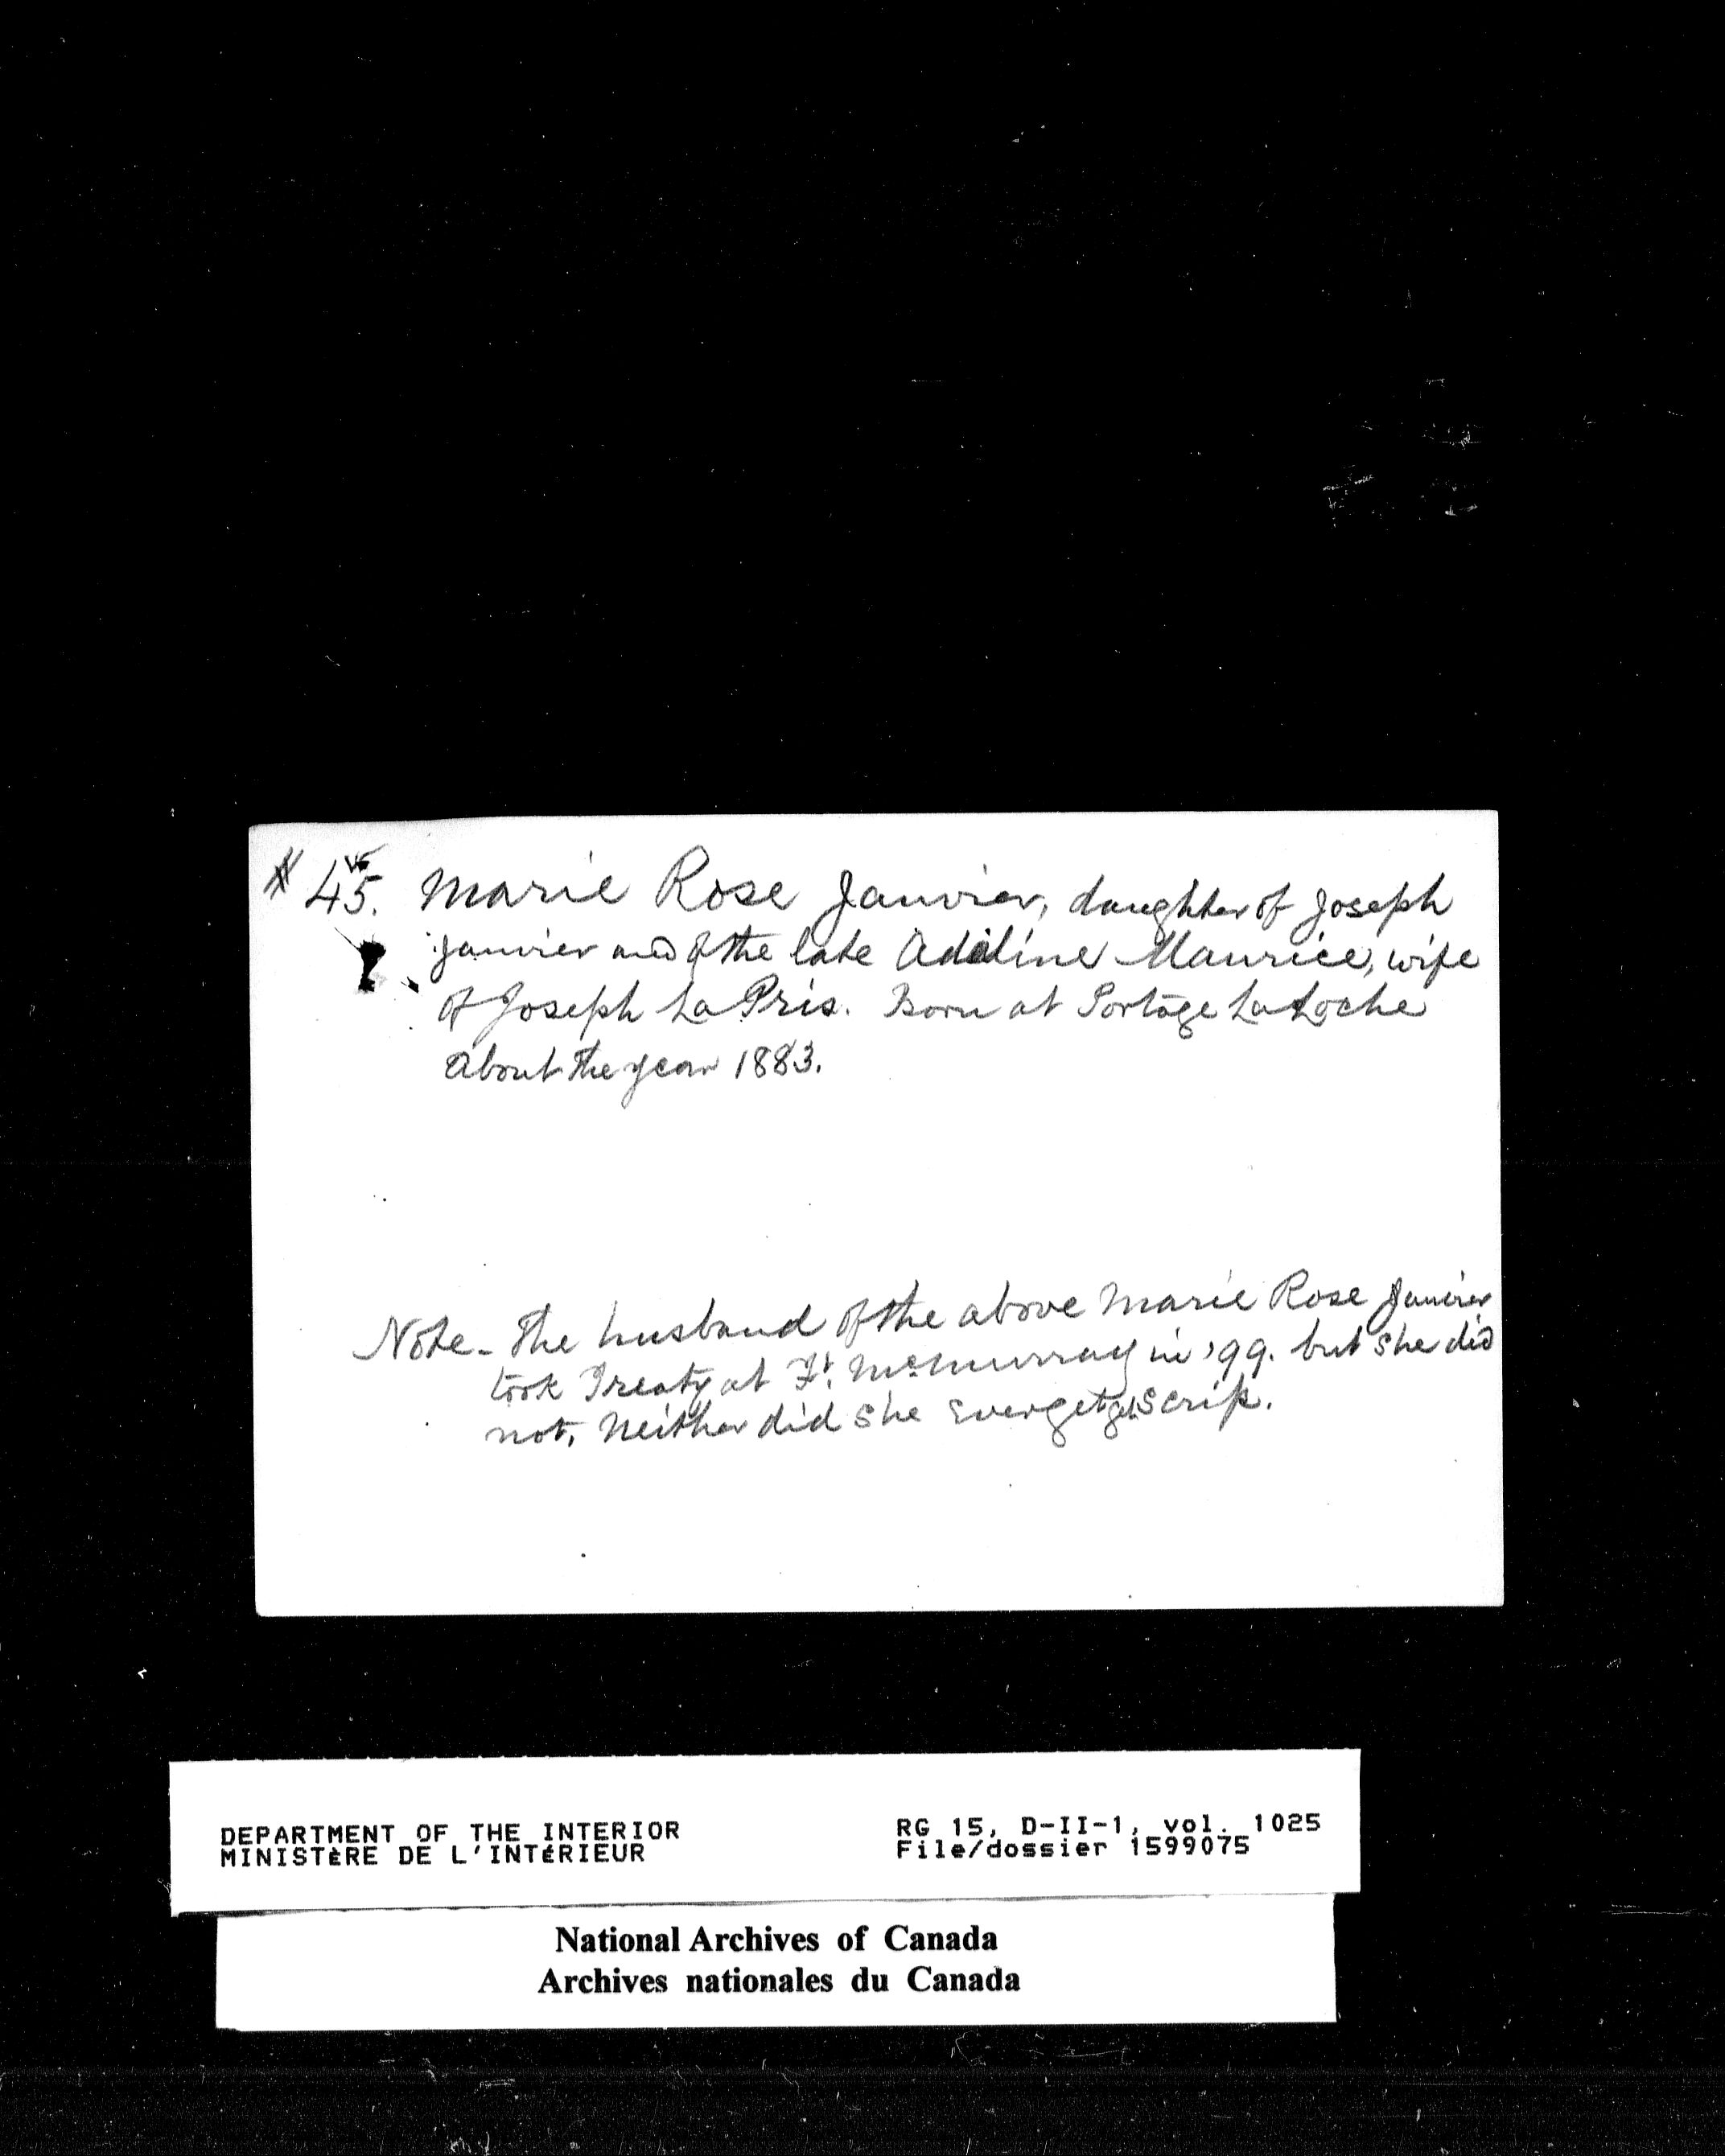 # 45. Marie Rose Janvier, daughter of Joseph
Janvier and of the late Adeline Maurice, wife
of Joseph La Pris. Born at Portage La Loche
About the year 1883.
Note - The husband of the above Marie Rose Janvier
took Treaty at Ft. McMurray in '99. but she did
not, Neither did she ever get scrip.
DEPARTMENT OF THE INTERIOR
MINISTÈRE DE L'INTÉRIEUR
RG 15, D-II-1, vol. 1025
File/dossier 1599075
National Archives of Canada
Archives nationales du Canada